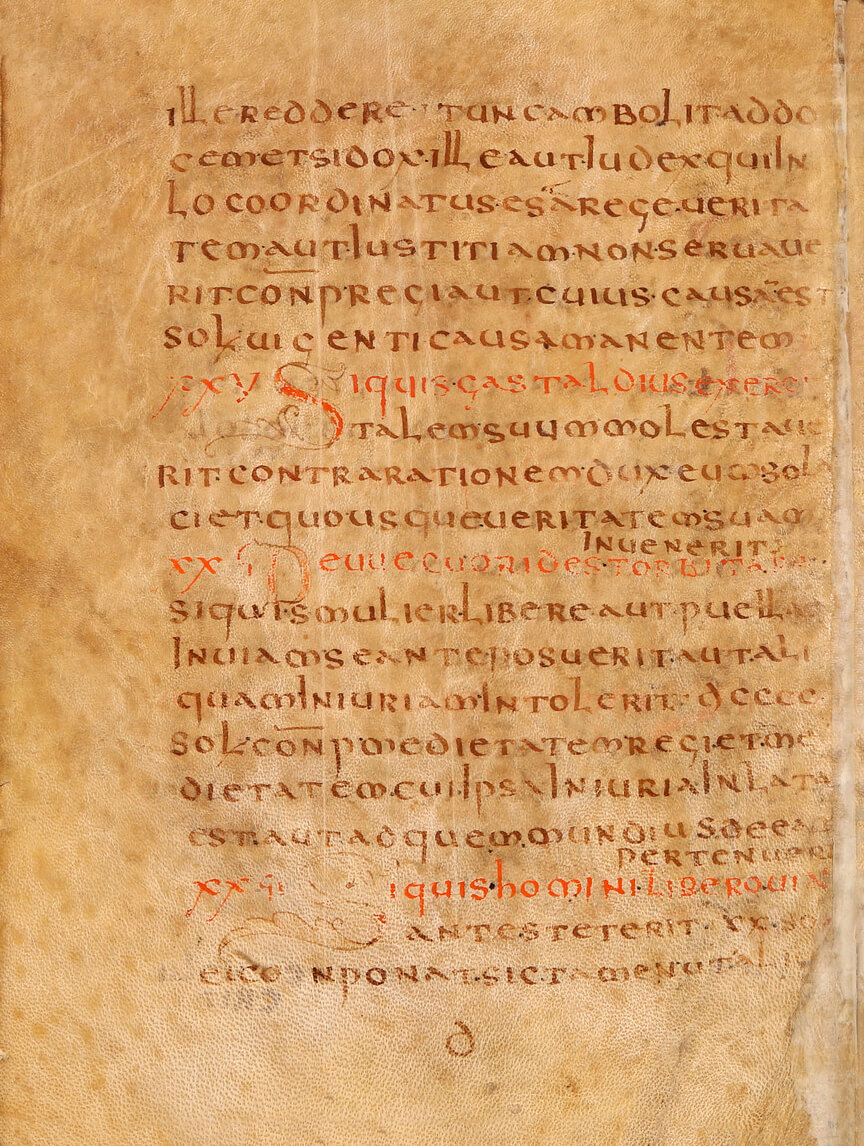 ille reddere· tunc ambolit ad do
cem et si dox· ille aut iudex qui in
loco ordinatus est a rege· uerita
tem· aut iustitiam· non· seruaue
rit· conp regi aut· cuius· causa est
sol· uigenti causa manentem
xxv Si quis· gastaldius· exerci
talem suum molestaue
rit· contra rationem dux eum sola
ciet· quousque· ueritatem suam
inuenerit·
xx De
si quis mulier libere aut puella
in uiam se anteposuerit· aut ali
quam iniuriam intolerit· dcccc
sol· conp medietatem regi et me
dietatem· cui ipsa iniuria inlata
est· aut ad quem· mundius de ea
pertenuer
xx iquis· homini· libero· uia
antesteterit· xx· so
ei conponat· sic tamen ut ali
d